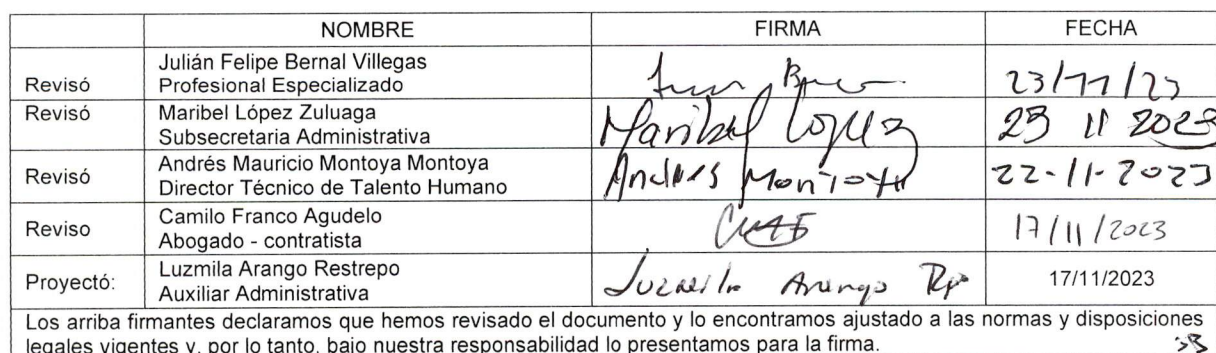 NOMBRE FIRMA FECHA
Julián Felipe Bernal Villegas
Revisó Profesional Especializado 23/11/23
Revisó Maribel López Zuluaga
Subsecretaria Administrativa Maribel López 23 11 2023
Andrés Mauricio Montoya Montoya
Revisó Director Técnico de Talento Humano Andrés Montoya 22-11-2023
Camilo Franco Agudelo
Reviso Abogado - contratista 17/11/2023
Luzmila Arango Restrepo
Proyectó: Auxiliar Administrativa Luzmila Arango Rpo 17/11/2023
Los arriba firmantes declaramos que hemos revisado el documento y lo encontramos ajustado a las normas y disposiciones
legales vigentes y, por lo tanto, bajo nuestra responsabilidad lo presentamos para la firma.